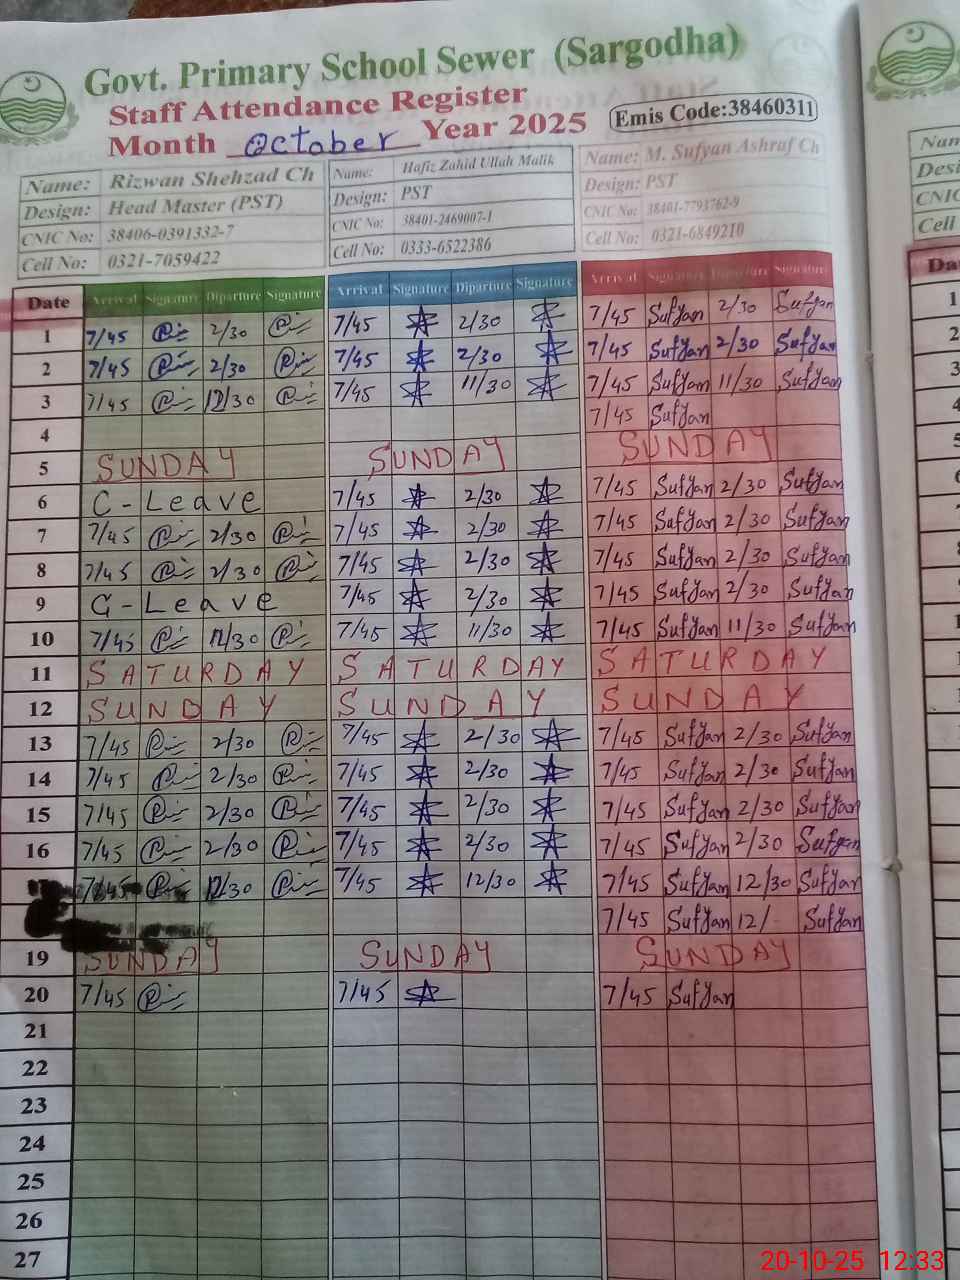 Govt. Primary School Sewer (Sargodha)
Staff Attendance Register
Month October Year 2025 Emis Code:38460311
Name: Rizwan Shehzad Ch Name: Hafiz Zahid Ullah Malik Name: M. Sufyan Ashraf Ch Nam
Design: Head Master (PST) Design: PST Design: PST Desi
CNIC No: 38406-0391332-7 CNIC No: 38401-2469007-1 CNIC No: 38401-7793762-9 CNIC
Cell No: 0321-7059422 Cell No: 0333-6522386 Cell No: 0321-6849210 Cell
Date Arrival Signature Diparture Signature Arrival Signature Diparture Signature Arrival Signature Diparture Signature Da
1 7/45 2/30 7/45 2/30 7/45 Sufyan 2/30 Sufyan 1
2 7/45 2/30 7/45 2/30 7/45 Sufyan 2/30 Sufyan 2
3 7/45 12/30 7/45 11/30 7/45 Sufyan 11/30 Sufyan 3
4 7/45 Sufyan 4
5 SUNDAY SUNDAY SUNDAY 5
6 C-Leave 7/45 2/30 7/45 Sufyan 2/30 Sufyan
7 7/45 2/30 7/45 2/30 7/45 Sufyan 2/30 Sufyan
8 7/45 2/30 7/45 2/30 7/45 Sufyan 2/30 Sufyan
9 C-Leave 7/45 2/30 7/45 Sufyan 2/30 Sufyan
10 7/45 11/30 7/45 11/30 7/45 Sufyan 11/30 Sufyan
11 SATURDAY SATURDAY SATURDAY
12 SUNDAY SUNDAY SUNDAY
13 7/45 2/30 7/45 2/30 7/45 Sufyan 2/30 Sufyan
14 7/45 2/30 7/45 2/30 7/45 Sufyan 2/30 Sufyan
15 7/45 2/30 7/45 2/30 7/45 Sufyan 2/30 Sufyan
16 7/45 2/30 7/45 2/30 7/45 Sufyan 2/30 Sufyan
7/45 12/30 7/45 12/30 7/45 Sufyan 12/30 Sufyan
7/45 Sufyan 12/- Sufyan
19 SUNDAY SUNDAY SUNDAY
20 7/45 7/45 7/45 Sufyan
21
22
23
24
25
26
27
20-10-25 12:33